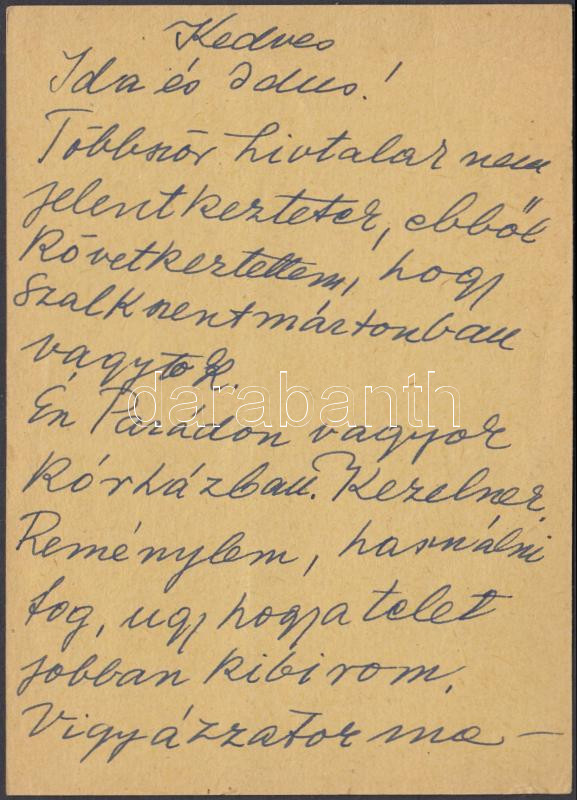 Kedves
Ida és Idus!
Többször hivtalak nem
jelentkeztetek, ebből
következtettem, hogy
Szalkszentmártonban
vagytok.
Én Parádon vagyok
kórházban. Kezelnek.
Reménylem, használni
fog, ugy hogy a telet
jobban kibirom.
Vigyázzatok ma-
darabanth